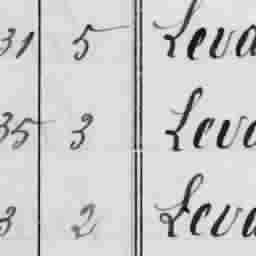 31 5 Leva
35 3 Leva
3 2 Leva